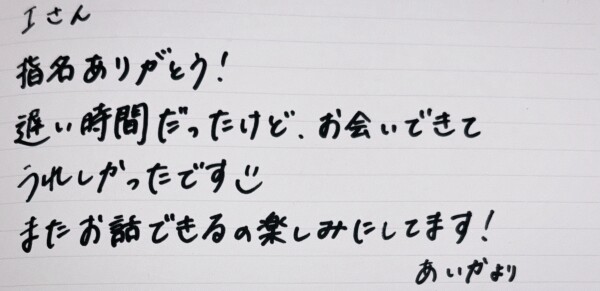 Iさん
指名ありがとう!
遅い時間だったけど、お会いできて
うれしかったです
またお話できるの楽しみにしてます!
あいかより